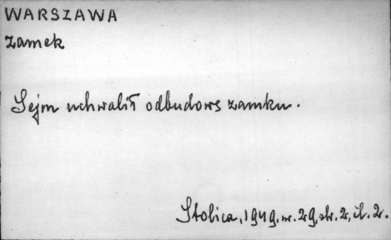 WARSZAWA
Zamek
Sejm uchwalił odbudowę zamku.
Stolica, 1949, nr. 29, str. 2, il. 2.